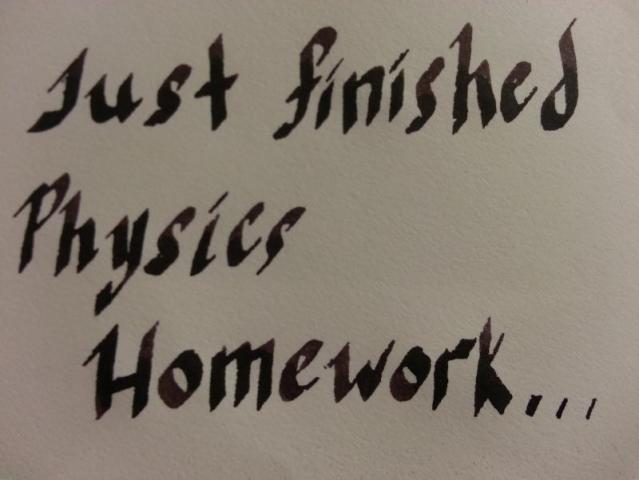 Just finished
Physics
Homework...